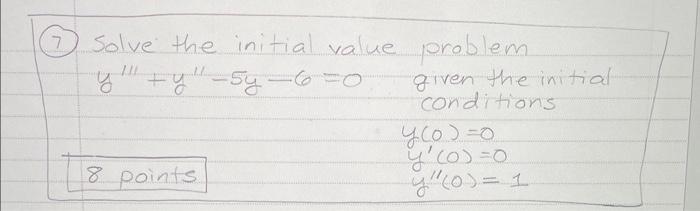 7 Solve the initial value problem
y''' + y'' - 5y - 6 = 0 given the initial
conditions
y(0) = 0
y'(0) = 0
8 points y''(0) = 1